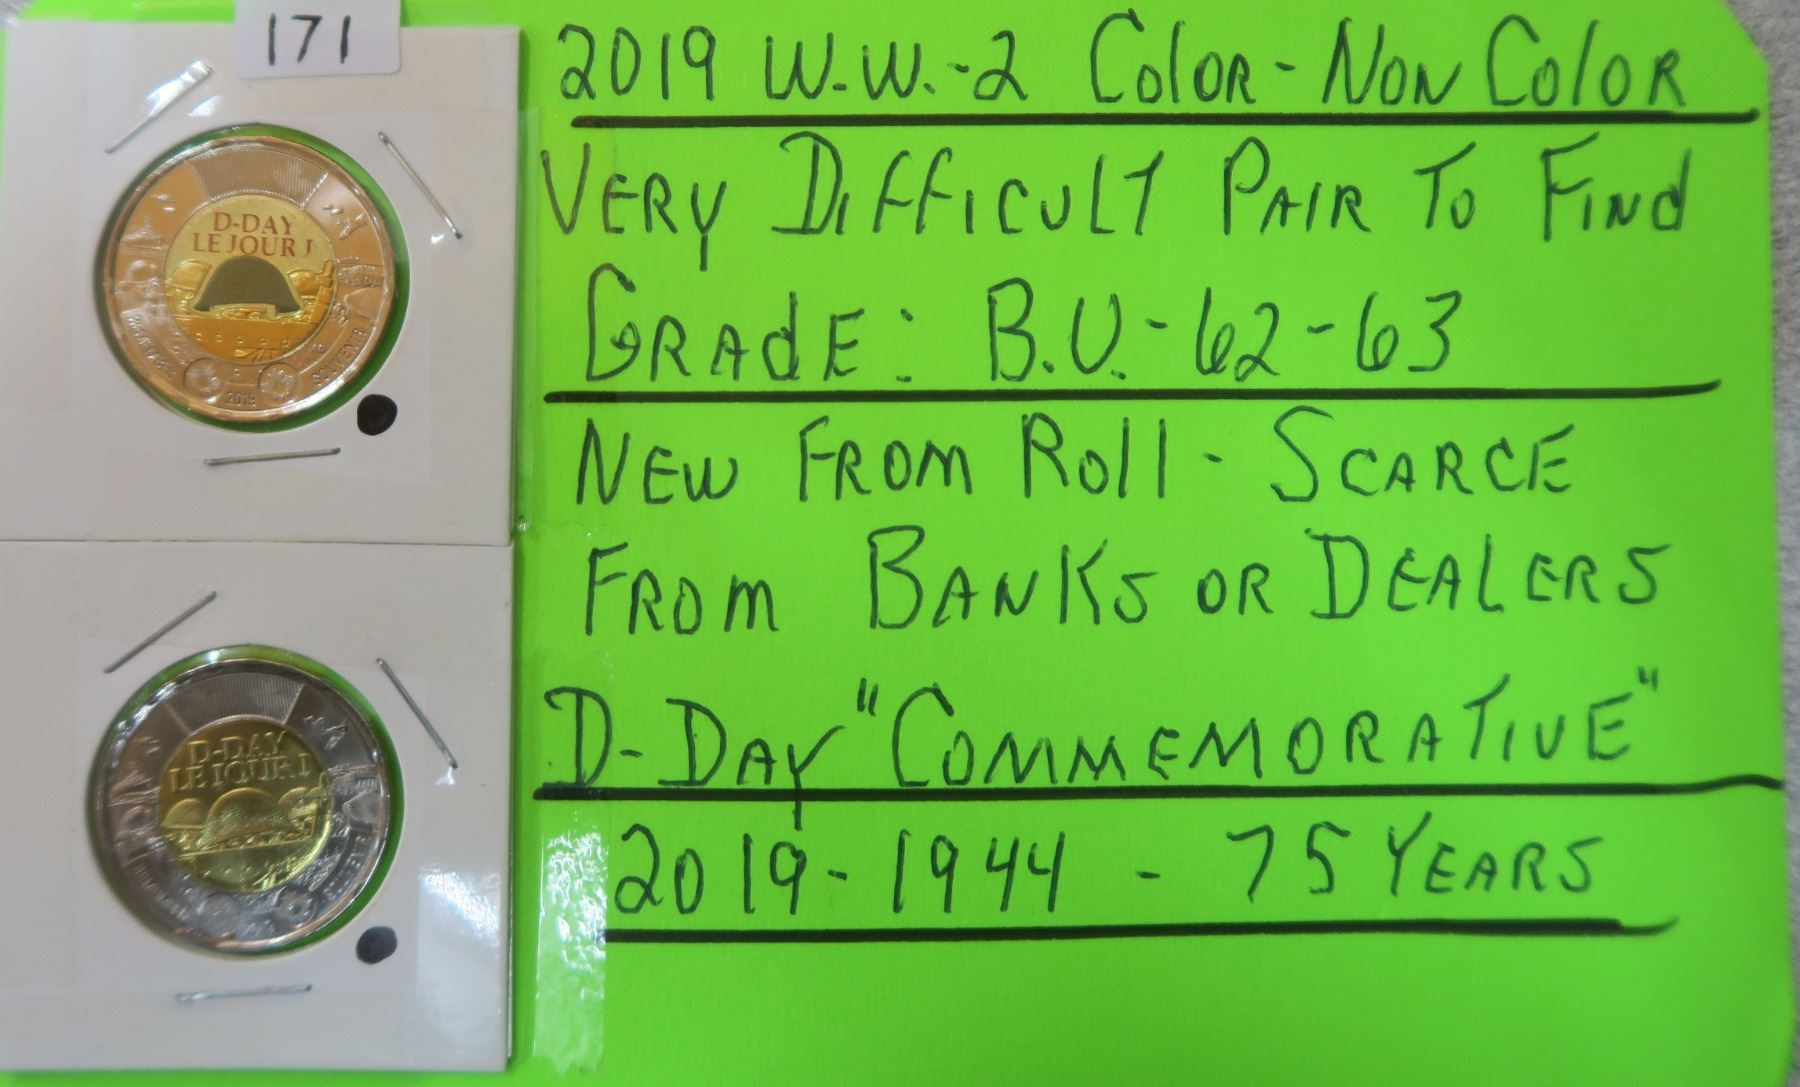 171
2019 W.W.-2 Color - Non Color
Very Difficult Pair To Find
Grade: B.U.-62-63
New From Roll - Scarce
From Banks or Dealers
D-Day "Commemorative"
2019-1944 - 75 Years
D-DAY
LE JOUR J
SOUVENIR
2019
D-DAY
LE JOUR J